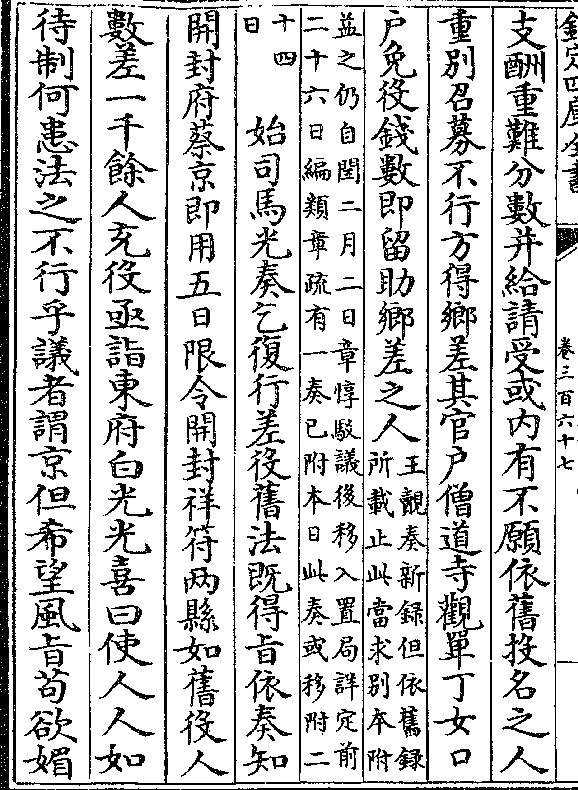 欽定四庫全書
卷三百六十七
支酬重難分數并給請受或内有不願依舊投名之人
重别召募不行方得鄉差其官户僧道寺觀單丁女口
户免役錢數即留助鄉差之人王覿奏新録但依舊録
所載止此當求别本附
益之仍自閏二月二日章惇駁議後移入置局詳定前
二十六日編類章疏有一奏已附本日此奏或移附二
十四
日
始司馬光奏乞復行差役舊法既得旨依奏知
開封府蔡京即用五日限令開封祥符兩縣如舊役人
數差一千餘人充役亟詣東府白光光喜曰使人人如
待制何患法之不行乎議者謂京但希望風旨茍欲媚